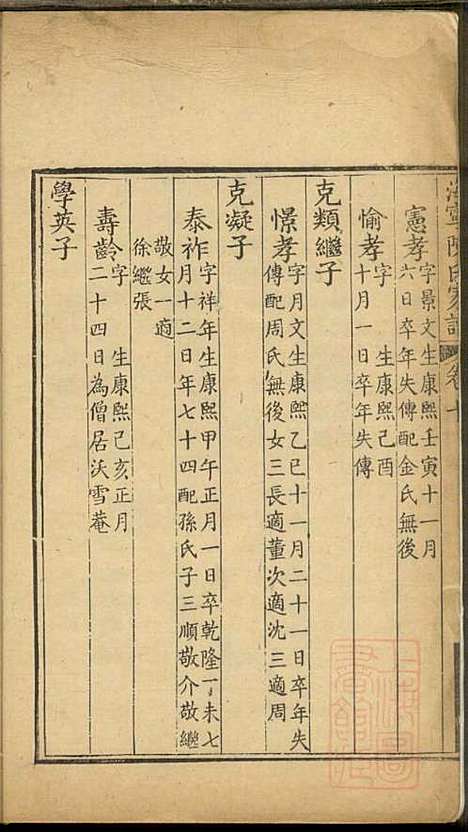 海寧陳氏家譜 卷十
憲孝 字景文生康熙壬寅十一月
六日卒年失傳配金氏無後
愉孝 字 生康熙己酉
十月一日卒年失傳
克類繼子
憬孝 字月文生康熙乙巳十一月二十一日卒年失
傳配周氏無後女三長適董次適沈三適周
克凝子
泰祚 字祥年生康熙甲午正月一日卒乾隆丁未七
月十二日年七十四配孫氏子三順敬介敬繼
敬女一適
徐繼張
壽齡 字 生康熙己亥正月
二十四日為僧居沃雪菴
學英子
上海圖書館藏